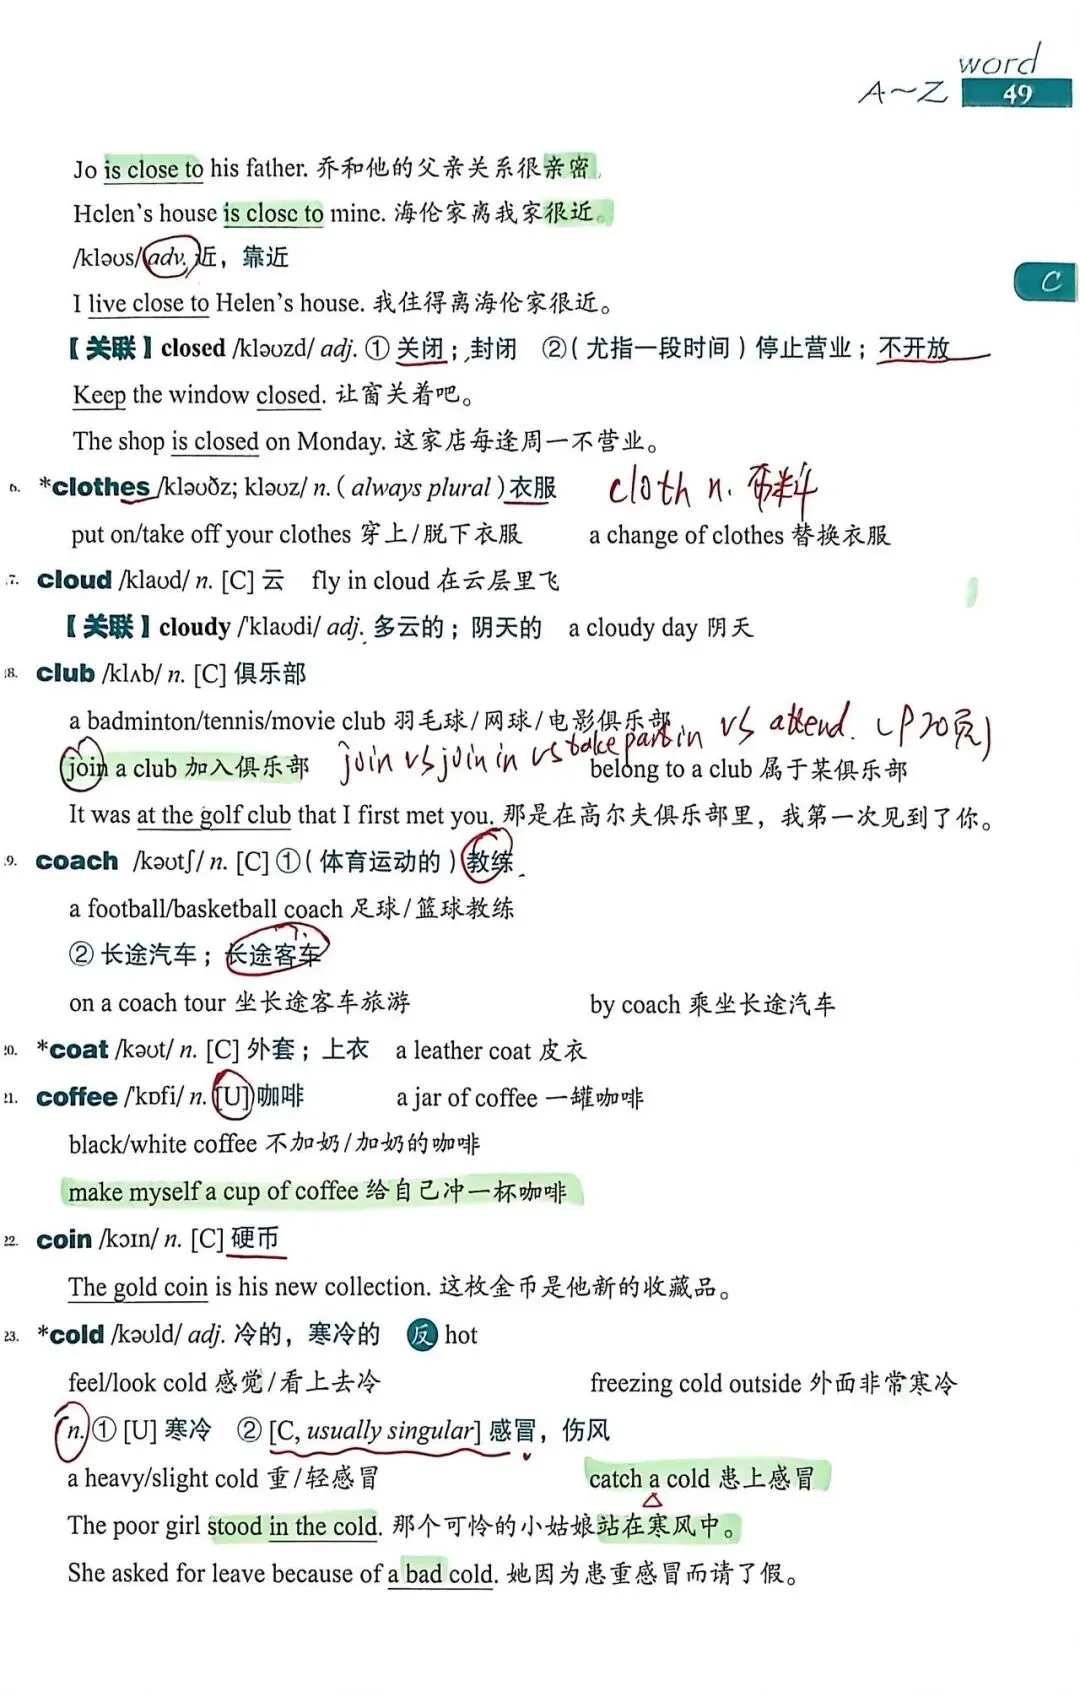 word
A~Z 49
Jo is close to his father. 乔和他的父亲关系很亲密。
Helen's house is close to mine. 海伦家离我家很近。
/kləʊs/ adv. 近，靠近
C
I live close to Helen's house. 我住得离海伦家很近。
【关联】closed /kləʊzd/ adj. ①关闭；封闭 ②（尤指一段时间）停止营业；不开放
Keep the window closed. 让窗关着吧。
The shop is closed on Monday. 这家店每逢周一不营业。
6. *clothes /kləʊðz; kləʊz/ n. ( always plural ) 衣服 cloth n. 布料
put on/take off your clothes 穿上/脱下衣服 a change of clothes 替换衣服
17. cloud /klaʊd/ n. [C] 云 fly in cloud 在云层里飞
【关联】cloudy /'klaʊdi/ adj. 多云的；阴天的 a cloudy day 阴天
18. club /klʌb/ n. [C] 俱乐部
a badminton/tennis/movie club 羽毛球/网球/电影俱乐部
join vs join in vs take part in vs attend. (P20页)
join a club 加入俱乐部 belong to a club 属于某俱乐部
It was at the golf club that I first met you. 那是在高尔夫俱乐部里，我第一次见到了你。
19. coach /kəʊtʃ/ n. [C] ①（体育运动的）教练
a football/basketball coach 足球/篮球教练
②长途汽车；长途客车
on a coach tour 坐长途客车旅游 by coach 乘坐长途汽车
20. *coat /kəʊt/ n. [C] 外套；上衣 a leather coat 皮衣
21. coffee /'kɒfi/ n. [U] 咖啡 a jar of coffee 一罐咖啡
black/white coffee 不加奶/加奶的咖啡
make myself a cup of coffee 给自己冲一杯咖啡
22. coin /kɔɪn/ n. [C] 硬币
The gold coin is his new collection. 这枚金币是他新的收藏品。
23. *cold /kəʊld/ adj. 冷的，寒冷的 反 hot
feel/look cold 感觉/看上去冷 freezing cold outside 外面非常寒冷
n. ① [U] 寒冷 ② [C, usually singular] 感冒，伤风
a heavy/slight cold 重/轻感冒 catch a cold 患上感冒
The poor girl stood in the cold. 那个可怜的小姑娘站在寒风中。
She asked for leave because of a bad cold. 她因为患重感冒而请了假。